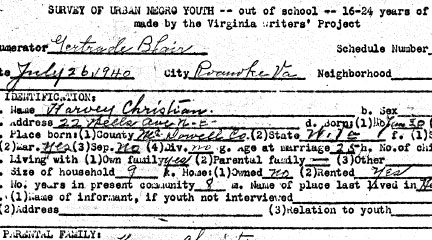 SURVEY OF URBAN NEGRO YOUTH -- out of school -- 16-24 years of
made by the Virginia Writers' Project
numerator Gertrude Blair Schedule Number
te July 26, 1940 City Roanoke Va Neighborhood
IDENTIFICATION:
. Name Harvey Christian b. Sex
. Address 22 Wells Ave N.E. d. Born:(1)Mo
. Place born:(1)County McDowell Co.(2)State W. Va f. (1)
(2)Mar. yes(3)Sep. no (4)Div. no g. Age at marriage 25 h. No.of chi
. Living with (1)Own family yes (2)Parental family — (3)Other
. Size of household 9 k. Home:(1)Owned no (2)Rented yes
. No. years in present community 8 m. Name of place last lived in
. (1)Name of informant, if youth not interviewed
(2)Address (3)Relation to youth
PARENTAL FAMILY: